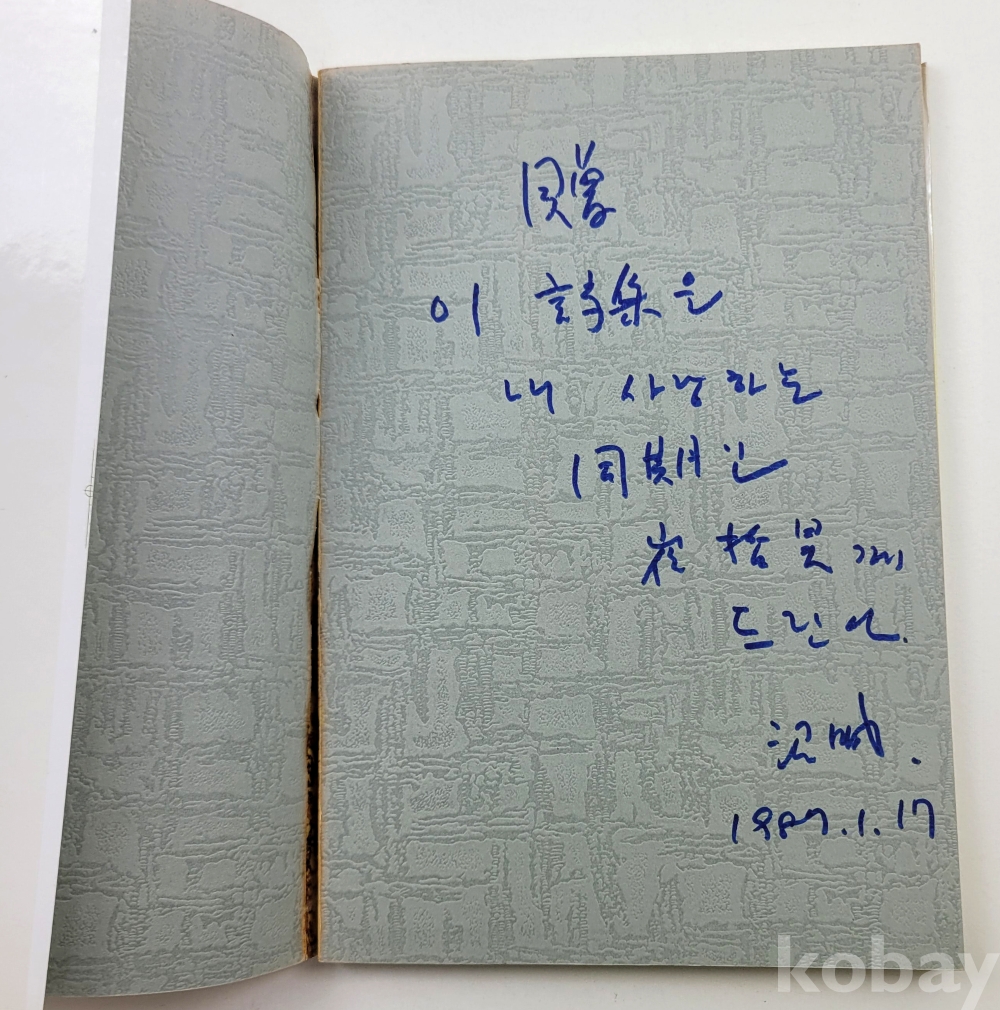 贈
이 詩集은
내 사랑하는
同期인
崔 께
드린다.
1987.1.17
kobay